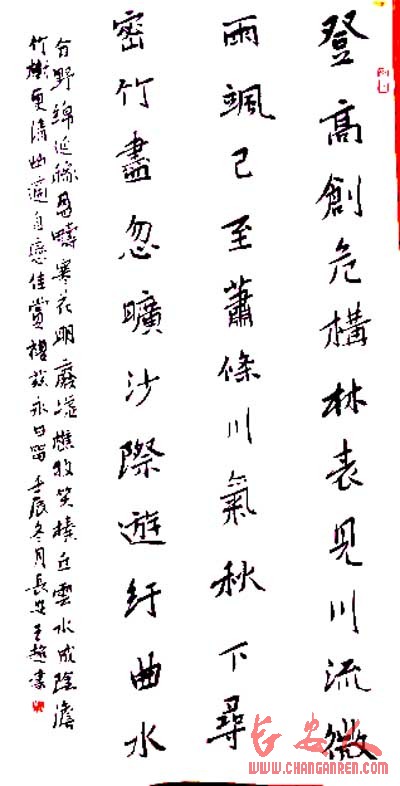 登高創危構林表見川流微
雨颯已至蕭條川氣秋下尋
密竹盡忽曠沙際遊紆曲水
分野綿延稼盈疇寒花明廢墟樵牧笑榛丘雲水成陰澹
竹樹更清幽適自戀佳賞復茲永日留壬辰冬月長安王書
长安人
www.CHANGANREN.com